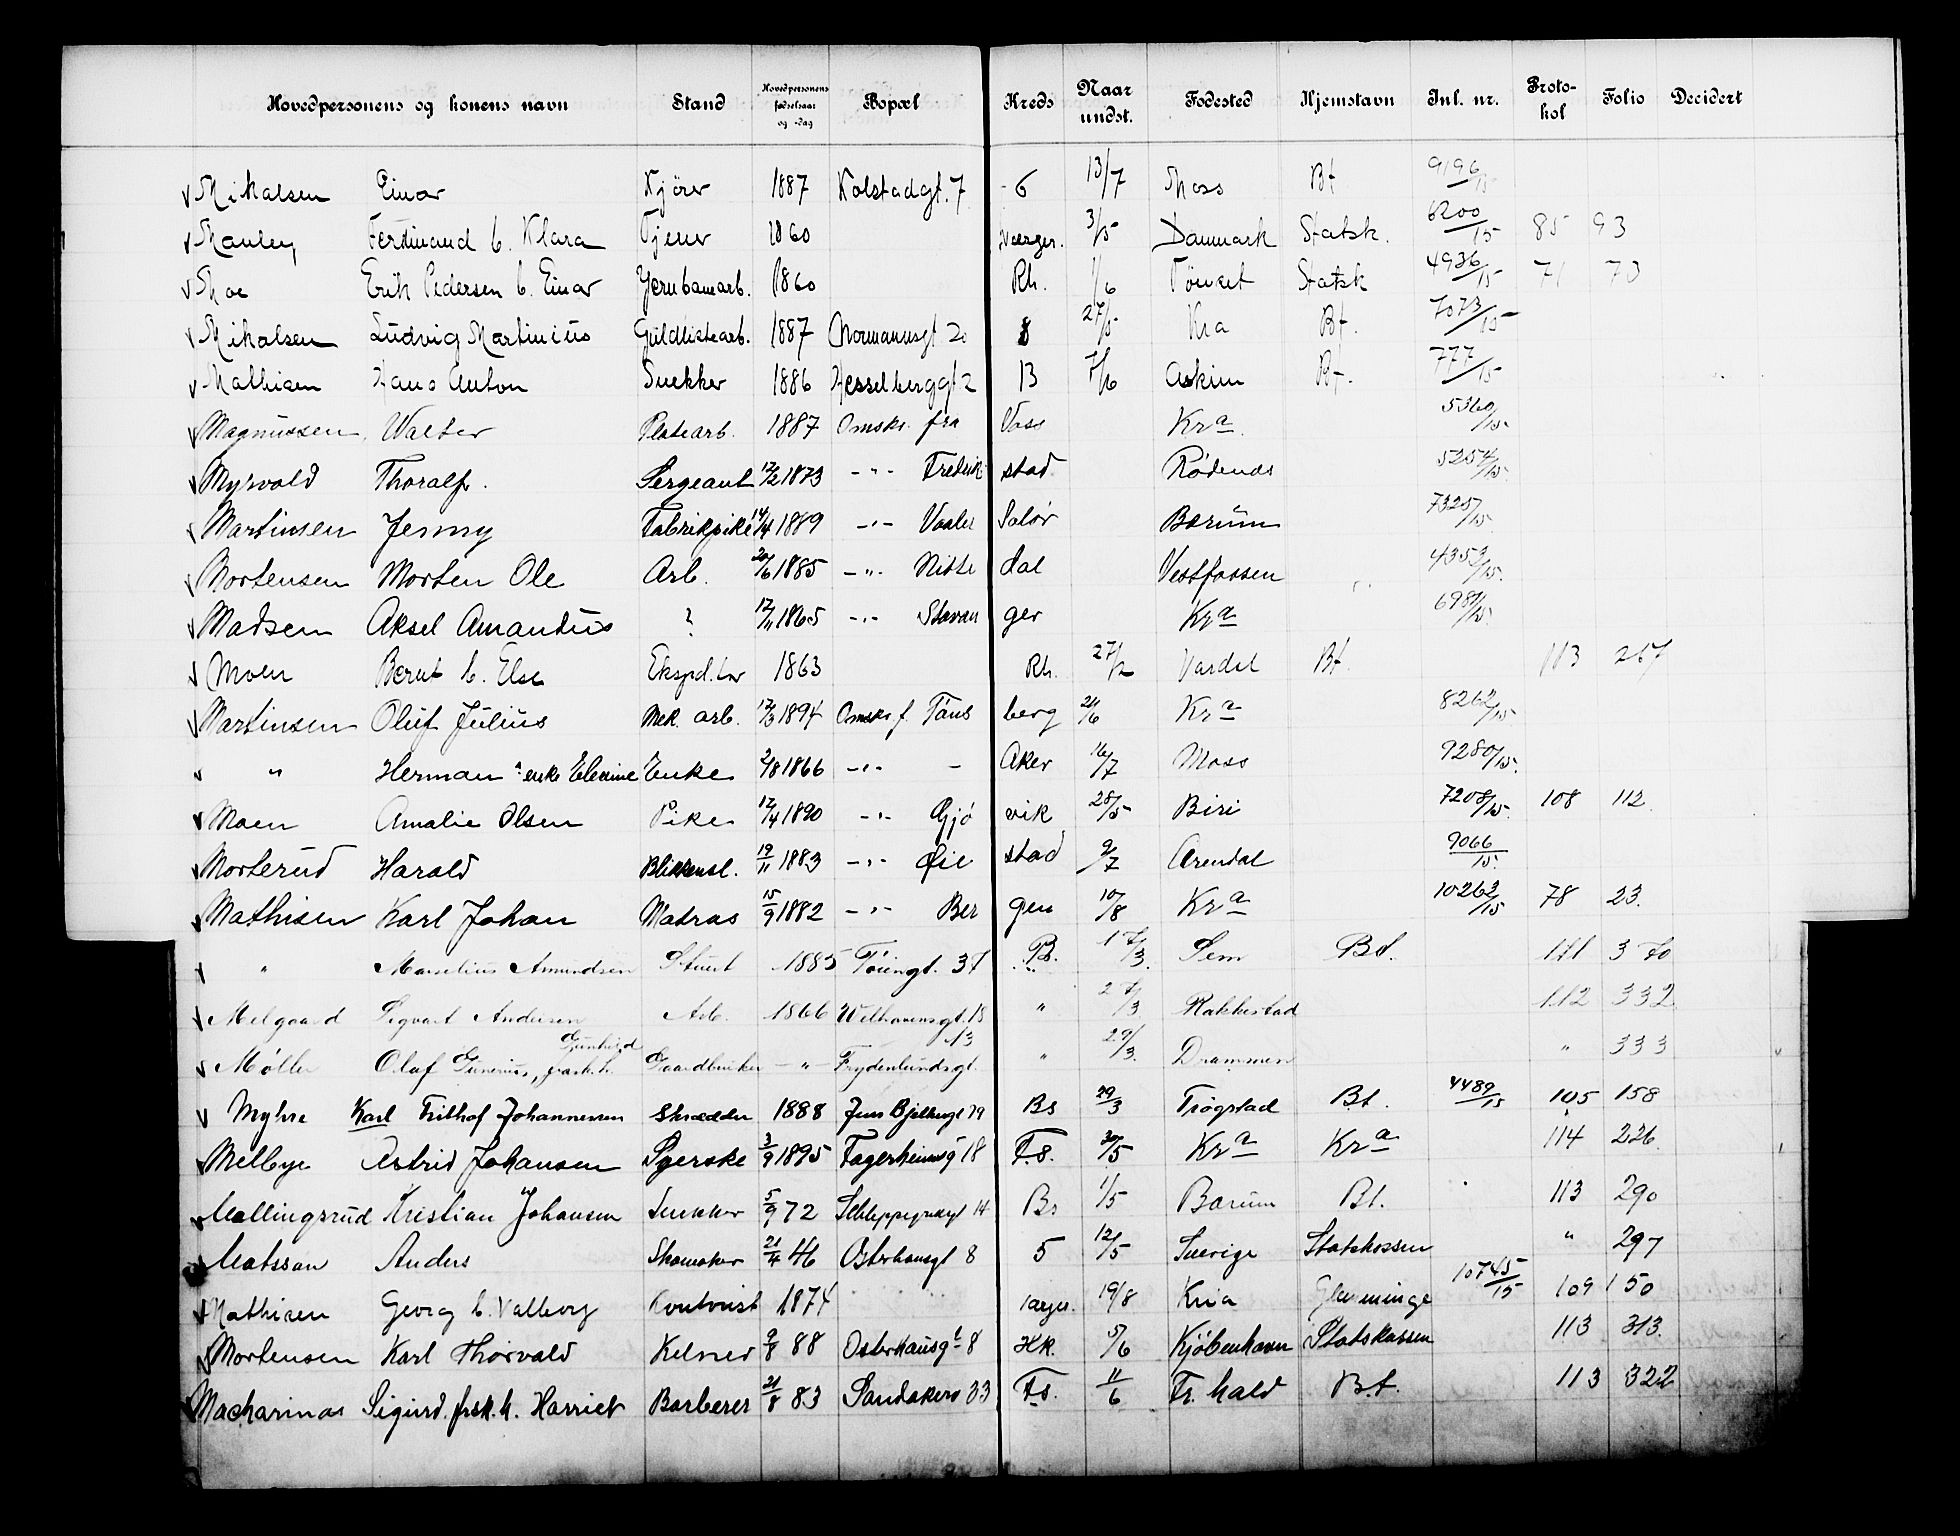 Hovedpersonens og konens navn Stand Hovedpersonens fødselsaar og -dag Bopæl Kreds Naar undst. Fødested Hjemstavn Inl. nr. Protokol Folio Decidert
Mikalsen Einar Kjörer 1887 Kolstadgt. 7 6 13/7 Moss Bt 9196/15
Ferdinand h. Klara Tjener 1860 3/5 Danmark Statsk. 6200/15 85 93
Moe Erik Pedersen h. Einar Jernbanearb. 1860 Rh. 1/6 Statsk 4936/15 71 73
Mikalsen Ludvig Martinius Guldlistearb. 1887 Normannsgt 20 8 27/5 Kra Bt. 7073/15
Mathisen Hans Anton Snekker 1886 Hesselberggt 2 13 /6 Askim Bt. 777/15
Magnussen, Walter Platearb. 1887 Omskr. fra Voss Kra. 5360/15
Myrvold Thoralf. Sergeant 17/2 1873 -"- Fredrik stad Rödenes 5254/15
Martinsen Jenny Fabrikpike 14/4 1889 -"- Vaaler Solör Bærum 7325/15
Mortensen Morten Ole Arb. 20/6 1885 -"- Nitte dal Vestfossen 4353/15
Madsen Aksel Amandus ? 17/11 1865 -"- Stavan ger Kra 698/15
Moen Bernt h. Else Eksped.tør 1863 Rh. 27/2 Vardal Bt. 113 257
Martinsen Oluf Julius Mek. arb. 17/3 1894 Omskr. f. Töns berg 21/6 Kra 8262/15
" Herman " enke Elevine Enke 2/8 1866 -"- - Aker 16/7 Moss 9280/15
Moen Amalie Olsen Pike 17/4 1890 -"- Gjö vik 28/5 Biri 7208/15 108 112
Morterud Harald Blikkensl. 19/11 1883 -"- Øie stad 9/7 Arendal 9066/15
Mathisen Karl Johan Matros 15/9 1882 -"- Ber gen 10/8 Kra 10263/15 78 23.
" Marselius Amundsen Stuert 1885 Töiengt. 37 B. 17/3 Sem Bt. 111 370
Melgaard Sigvart Andersen Arb. 1866 Welhavensgt. 18 " 27/3 Rakkestad 112 332
Gunhild 13
Møller Olaf Gunerius, frask. h. Gaardbruker - " - Frydenlundsgt. " 29/3. Drammen " 333
Myhre Karl Frithof Johannessen Skrædder 1888 Jens Bjelkesgt 79 Bs 29/3 Trögstad Bt. 4489/15 105 158
Melbye Astrid Johansen Syerske 3/9 1895 Fagerheimsg 18 F.s. 30/5 Kra Kra 114 226
Mallingsrud Kristian Johansen Snekker 5/9 72 Schleppegrellgt 14 Bs 1/5 Bærum Bt. 113 290
Matsson Anders Skomaker 21/4 46 Osterhausgt 8 5 12/5 Sverige Statskassen " 297
Mathisen Georg h. Valborg 1874 19/8 Kria Glemminge 10745/15 109 150
Mortensen Karl Thorvald Kelner 9/8 88 Osterhausgt 8 HK. 5/6 Kjöbenhavn Statskassen 113 313.
Macharinas Sigurd. frsk. h. Harriet Barberer 21/8 83 Sandakerv 33 Fs. 11/6 Fr. hald Bt. 113 322